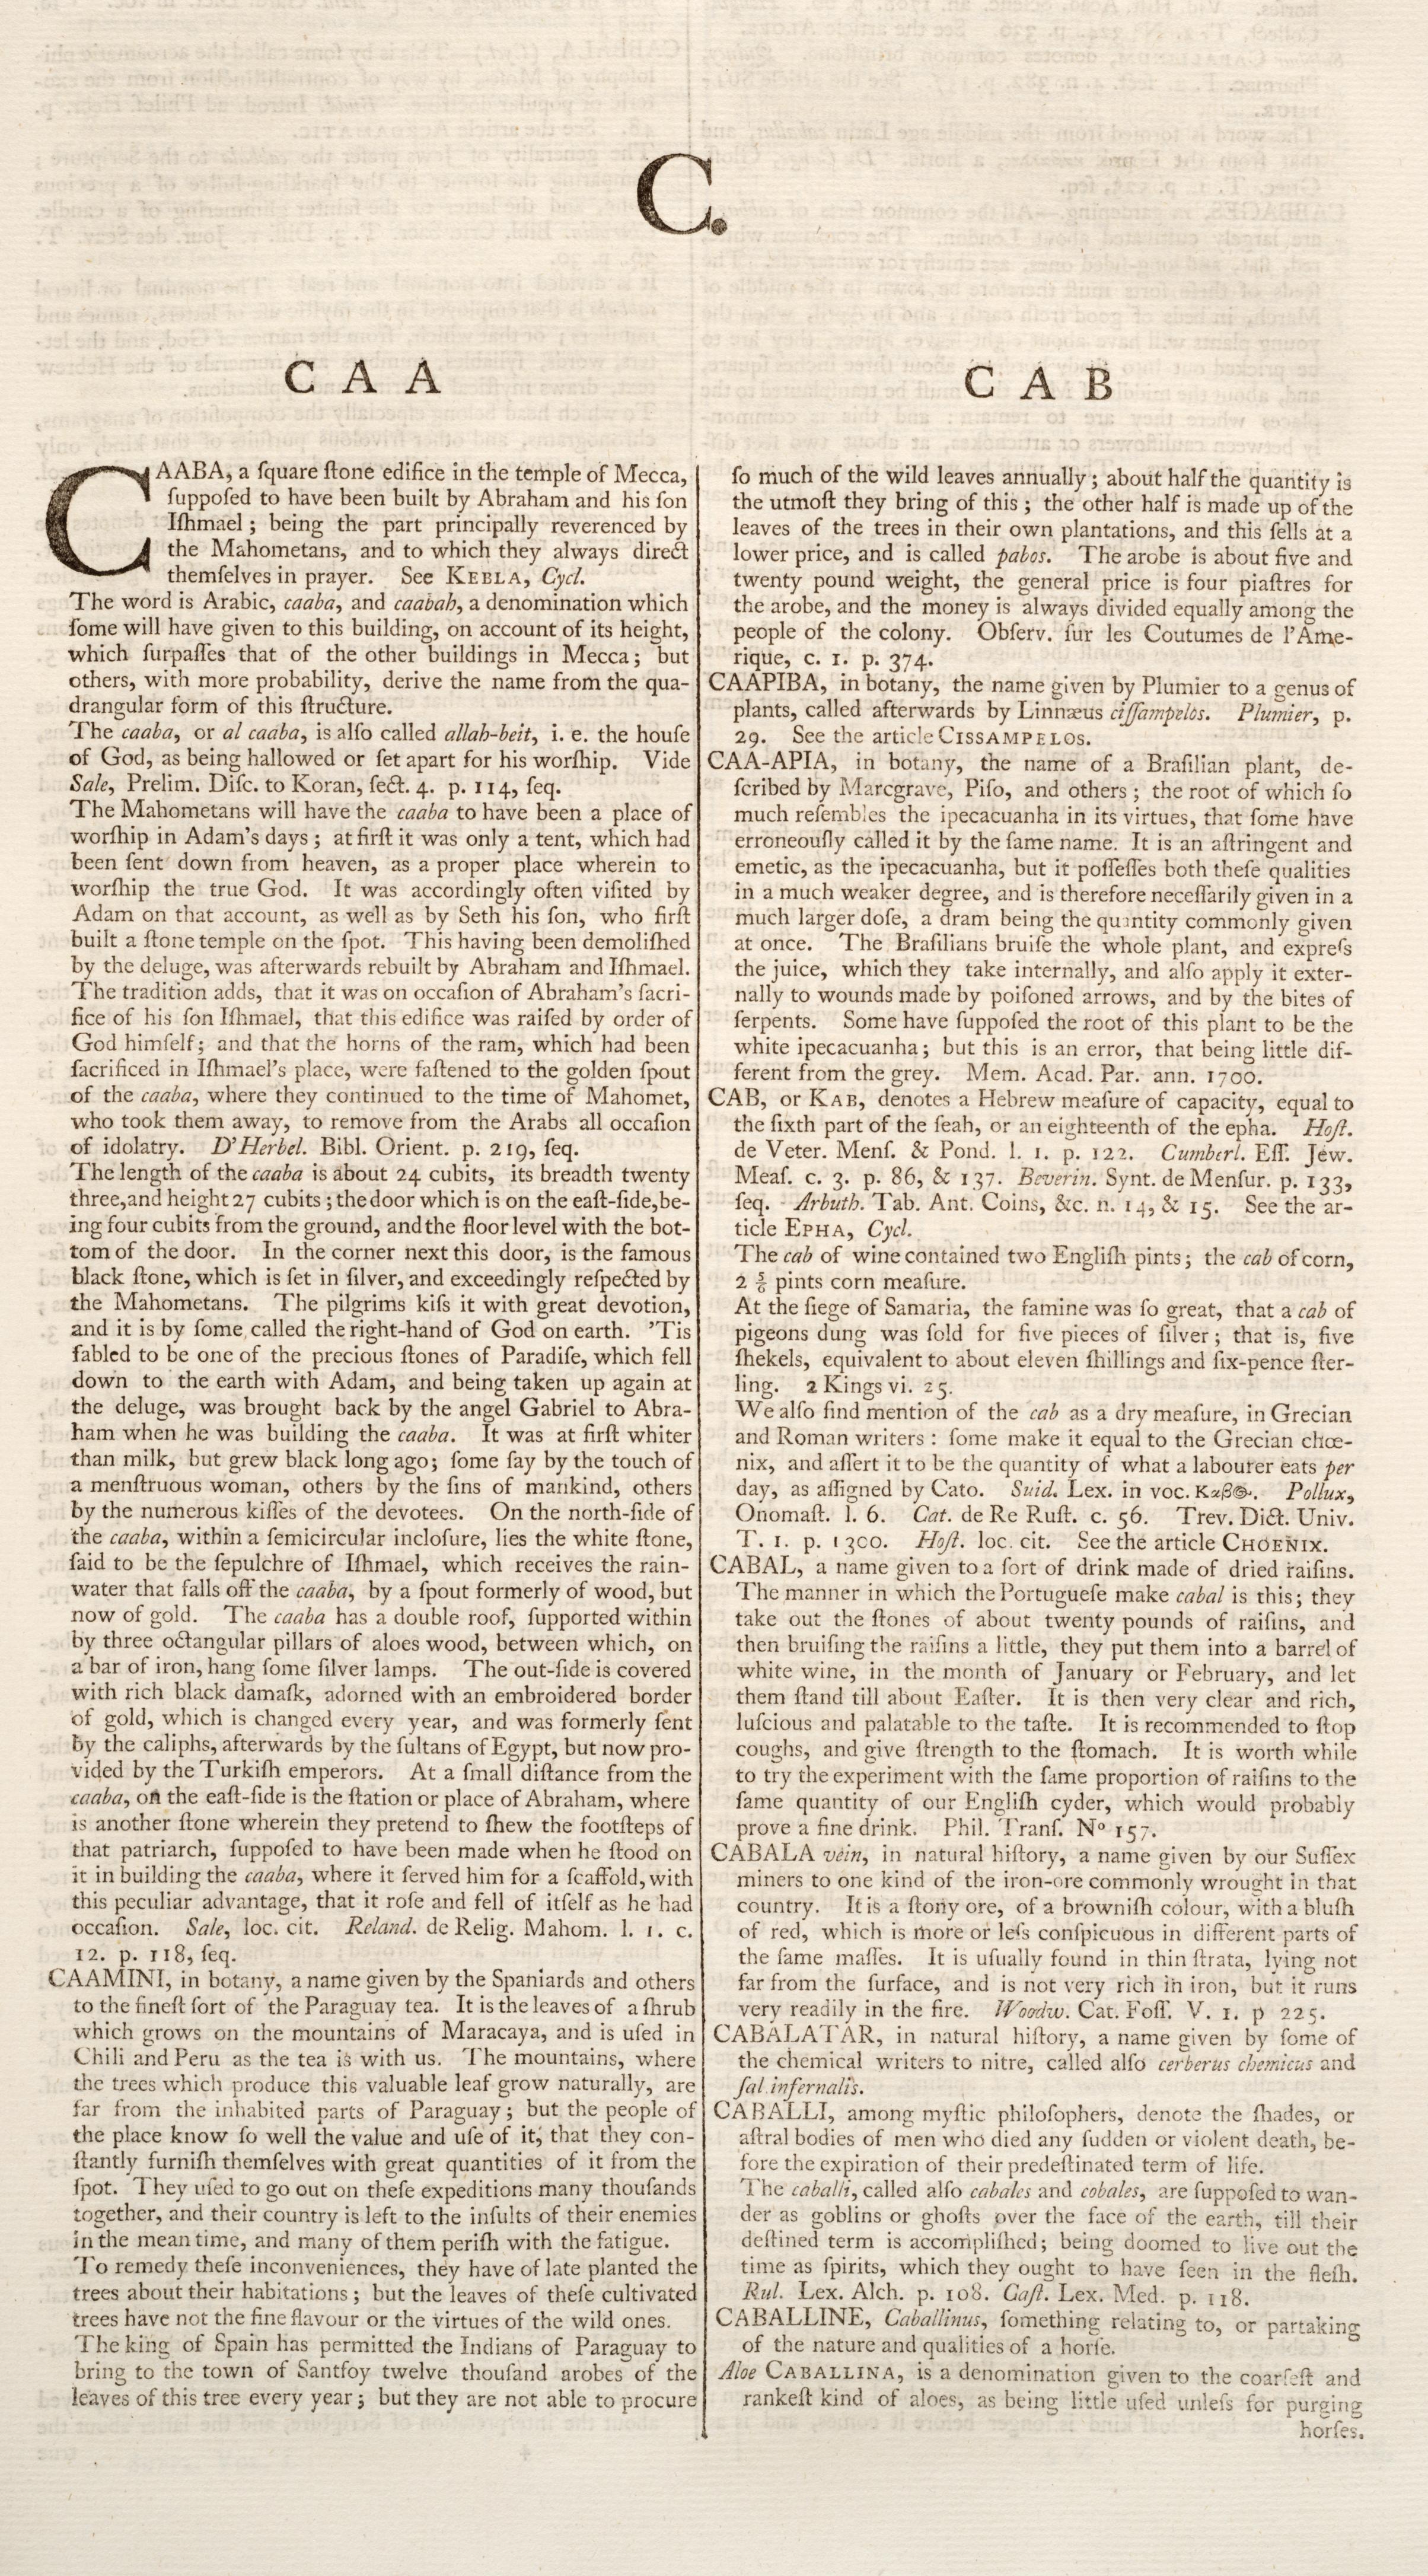 C.
C A A
CAABA, a ſquare ſtone edifice in the temple of Mecca,
ſuppoſed to have been built by Abraham and his ſon
Iſhmael; being the part principally reverenced by
the Mahometans, and to which they always direct
themſelves in prayer. See KEBLA, Cycl.
The word is Arabic, caaba, and caabah, a denomination which
ſome will have given to this building, on account of its height,
which ſurpaſſes that of the other buildings in Mecca; but
others, with more probability, derive the name from the qua-
drangular form of this ſtructure.
The caaba, or al caaba, is alſo called allah-beit, i. e. the houſe
of God, as being hallowed or ſet apart for his worſhip. Vide
Sale, Prelim. Diſc. to Koran, ſect. 4. p. 114, ſeq.
The Mahometans will have the caaba to have been a place of
worſhip in Adam's days; at firſt it was only a tent, which had
been ſent down from heaven, as a proper place wherein to
worſhip the true God. It was accordingly often viſited by
Adam on that account, as well as by Seth his ſon, who firſt
built a ſtone temple on the ſpot. This having been demoliſhed
by the deluge, was afterwards rebuilt by Abraham and Iſhmael.
The tradition adds, that it was on occaſion of Abraham's ſacri-
fice of his ſon Iſhmael, that this edifice was raiſed by order of
God himſelf; and that the horns of the ram, which had been
ſacrificed in Iſhmael's place, were faſtened to the golden ſpout
of the caaba, where they continued to the time of Mahomet,
who took them away, to remove from the Arabs all occaſion
of idolatry. D'Herbel. Bibl. Orient. p. 219, ſeq.
The length of the caaba is about 24 cubits, its breadth twenty
three, and height 27 cubits; the door which is on the eaſt-ſide, be-
ing four cubits from the ground, and the floor level with the bot-
tom of the door. In the corner next this door, is the famous
black ſtone, which is ſet in ſilver, and exceedingly reſpected by
the Mahometans. The pilgrims kiſs it with great devotion,
and it is by ſome called the right-hand of God on earth. 'Tis
fabled to be one of the precious ſtones of Paradiſe, which fell
down to the earth with Adam, and being taken up again at
the deluge, was brought back by the angel Gabriel to Abra-
ham when he was building the caaba. It was at firſt whiter
than milk, but grew black long ago; ſome ſay by the touch of
a menſtruous woman, others by the ſins of mankind, others
by the numerous kiſſes of the devotees. On the north-ſide of
the caaba, within a ſemicircular incloſure, lies the white ſtone,
ſaid to be the ſepulchre of Iſhmael, which receives the rain-
water that falls off the caaba, by a ſpout formerly of wood, but
now of gold. The caaba has a double roof, ſupported within
by three octangular pillars of aloes wood, between which, on
a bar of iron, hang ſome ſilver lamps. The out-ſide is covered
with rich black damaſk, adorned with an embroidered border
of gold, which is changed every year, and was formerly ſent
by the caliphs, afterwards by the ſultans of Egypt, but now pro-
vided by the Turkiſh emperors. At a ſmall diſtance from the
caaba, on the eaſt-ſide is the ſtation or place of Abraham, where
is another ſtone wherein they pretend to ſhew the footſteps of
that patriarch, ſuppoſed to have been made when he ſtood on
it in building the caaba, where it ſerved him for a ſcaffold, with
this peculiar advantage, that it roſe and fell of itſelf as he had
occaſion. Sale, loc. cit. Reland. de Relig. Mahom. l. 1. c.
12. p. 118, ſeq.
CAAMINI, in botany, a name given by the Spaniards and others
to the fineſt ſort of the Paraguay tea. It is the leaves of a ſhrub
which grows on the mountains of Maracaya, and is uſed in
Chili and Peru as the tea is with us. The mountains, where
the trees which produce this valuable leaf grow naturally, are
far from the inhabited parts of Paraguay; but the people of
the place know ſo well the value and uſe of it, that they con-
ſtantly furniſh themſelves with great quantities of it from the
ſpot. They uſed to go out on theſe expeditions many thouſands
together, and their country is left to the inſults of their enemies
in the mean time, and many of them periſh with the fatigue.
To remedy theſe inconveniences, they have of late planted the
trees about their habitations; but the leaves of theſe cultivated
trees have not the fine flavour or the virtues of the wild ones.
The king of Spain has permitted the Indians of Paraguay to
bring to the town of Santfoy twelve thouſand arobes of the
leaves of this tree every year; but they are not able to procure
C A B
ſo much of the wild leaves annually; about half the quantity is
the utmoſt they bring of this; the other half is made up of the
leaves of the trees in their own plantations, and this ſells at a
lower price, and is called pabos. The arobe is about five and
twenty pound weight, the general price is four piaſtres for
the arobe, and the money is always divided equally among the
people of the colony. Obſerv. ſur les Coutumes de l'Ame-
rique, c. 1. p. 374.
CAAPIBA, in botany, the name given by Plumier to a genus of
plants, called afterwards by Linnæus ciſſampelos. Plumier, p.
29. See the article CISSAMPELOS.
CAA-APIA, in botany, the name of a Braſilian plant, de-
ſcribed by Marcgrave, Piſo, and others; the root of which ſo
much reſembles the ipecacuanha in its virtues, that ſome have
erroneouſly called it by the ſame name. It is an aſtringent and
emetic, as the ipecacuanha, but it poſſeſſes both theſe qualities
in a much weaker degree, and is therefore neceſſarily given in a
much larger doſe, a dram being the quantity commonly given
at once. The Braſilians bruiſe the whole plant, and expreſs
the juice, which they take internally, and alſo apply it exter-
nally to wounds made by poiſoned arrows, and by the bites of
ſerpents. Some have ſuppoſed the root of this plant to be the
white ipecacuanha; but this is an error, that being little dif-
ferent from the grey. Mem. Acad. Par. ann. 1700.
CAB, or KAB, denotes a Hebrew meaſure of capacity, equal to
the ſixth part of the ſeah, or an eighteenth of the epha. Hoſt.
de Veter. Menſ. & Pond. l. 1. p. 122. Cumberl. Eſſ. Jew.
Meaſ. c. 3. p. 86, & 137. Beverin. Synt. de Menſur. p. 133,
ſeq. Arbuth. Tab. Ant. Coins, &c. n. 14, & 15. See the ar-
ticle EPHA, Cycl.
The cab of wine contained two Engliſh pints; the cab of corn,
2 5/6 pints corn meaſure.
At the ſiege of Samaria, the famine was ſo great, that a cab of
pigeons dung was ſold for five pieces of ſilver; that is, five
ſhekels, equivalent to about eleven ſhillings and ſix-pence ſter-
ling. 2 Kings vi. 25.
We alſo find mention of the cab as a dry meaſure, in Grecian
and Roman writers: ſome make it equal to the Grecian chœ-
nix, and aſſert it to be the quantity of what a labourer eats per
day, as aſſigned by Cato. Suid. Lex. in voc. Καβος. Pollux,
Onomaſt. l. 6. Cat. de Re Ruſt. c. 56. Trev. Dict. Univ.
T. 1. p. 1300. Hoſt. loc. cit. See the article CHOENIX.
CABAL, a name given to a ſort of drink made of dried raiſins.
The manner in which the Portugueſe make cabal is this; they
take out the ſtones of about twenty pounds of raiſins, and
then bruiſing the raiſins a little, they put them into a barrel of
white wine, in the month of January or February, and let
them ſtand till about Eaſter. It is then very clear and rich,
luſcious and palatable to the taſte. It is recommended to ſtop
coughs, and give ſtrength to the ſtomach. It is worth while
to try the experiment with the ſame proportion of raiſins to the
ſame quantity of our Engliſh cyder, which would probably
prove a fine drink. Phil. Tranſ. Nº 157.
CABALA vein, in natural hiſtory, a name given by our Suſſex
miners to one kind of the iron-ore commonly wrought in that
country. It is a ſtony ore, of a browniſh colour, with a bluſh
of red, which is more or leſs conſpicuous in different parts of
the ſame maſſes. It is uſually found in thin ſtrata, lying not
far from the ſurface, and is not very rich in iron, but it runs
very readily in the fire. Woodw. Cat. Foſſ. V. 1. p 225.
CABALATAR, in natural hiſtory, a name given by ſome of
the chemical writers to nitre, called alſo cerberus chemicus and
ſal infernalis.
CABALLI, among myſtic philoſophers, denote the ſhades, or
aſtral bodies of men who died any ſudden or violent death, be-
fore the expiration of their predeſtinated term of life.
The caballi, called alſo cabales and cobales, are ſuppoſed to wan-
der as goblins or ghoſts over the face of the earth, till their
deſtined term is accompliſhed; being doomed to live out the
time as ſpirits, which they ought to have ſeen in the fleſh.
Rul. Lex. Alch. p. 108. Caſt. Lex. Med. p. 118.
CABALLINE, Caballinus, ſomething relating to, or partaking
of the nature and qualities of a horſe.
Aloe CABALLINA, is a denomination given to the coarſeſt and
rankeſt kind of aloes, as being little uſed unleſs for purging
horſes.